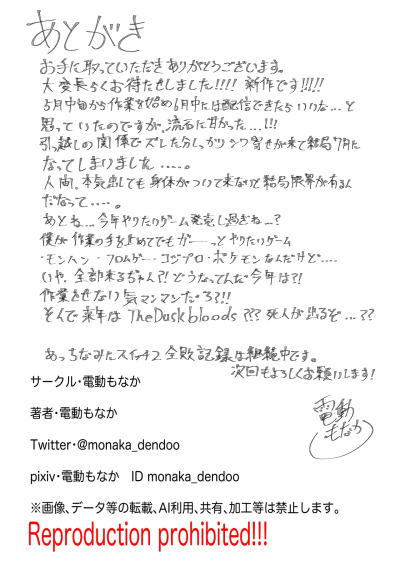 あとがき
お手に取っていただきありがとうございます。
大変長らくお待たせしました!!!! 新作です!!!!!
5月中旬から作業を始め6月中には配信できたらいいな…と
思っていたのですが、流石に甘かった…!!!
引っ越しの関係でズレた分しっかりシワ寄せが来て結局7月に
なってしまいました‥‥。
人間、本気出しても身体がついて来ないと結局限界が有るん
だなって‥‥。
あとね…今年やりたいゲーム発売し過ぎね…?
僕が作業の手を止めてでもガーーっとやりたいゲーム
・モンハン・フロムゲー・コジプロ・ポケモンなんだけど‥‥
いや、全部来るぢゃん?! どうなってんだ今年は?!
作業させない気マンマンだろ??!!
そんで来年はTheDuskbloods??? 死人が出るぞ…??
あっちなみにスイッチ2全敗記録は継続中です。
次回もよろしくお願いします!
電動
もなか
サークル・電動もなか
著者・電動もなか
Twitter・@monaka_dendoo
pixiv・電動もなか ID monaka_dendoo
※画像、データ等の転載、AI利用、共有、加工等は禁止します。
Reproduction prohibited!!!